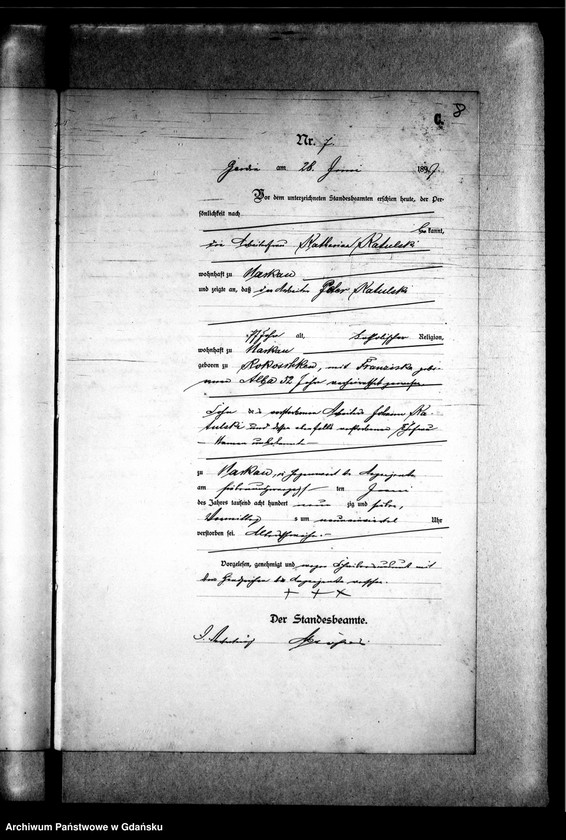 C. 8
Nr. 7.
am 28. Juni 1897.
Vor dem unterzeichneten Standesbeamten erschien heute, der Per-
sönlichkeit nach
bekannt,
die Arbeiterfrau Katharina Katulski
wohnhaft zu Warkau
und zeigte an, daß der Arbeiter Peter Katulski
77 Jahr alt, katholischer Religion,
wohnhaft zu Warkau
geboren zu Rokoschken, mit Franziska gebo-
renen 52 Jahr verheirathet gewesen
Sohn des verstorbenen Arbeiters Johann Ka-
tulski und dessen ebenfalls verstorbenen Ehefrau
Namen unbekannt
zu Warkau, in Gegenwart der Anzeigende
am ten Juni
des Jahres tausend acht hundert neun zig und sieben,
Vormittags um Uhr
verstorben sei. Altersschwäche.
Vorgelesen, genehmigt und wegen Schreibensunkunde mit
dem Handzeichen der Anzeigende versehen.
+ + +
Der Standesbeamte.
Archiwum Państwowe w Gdańsku